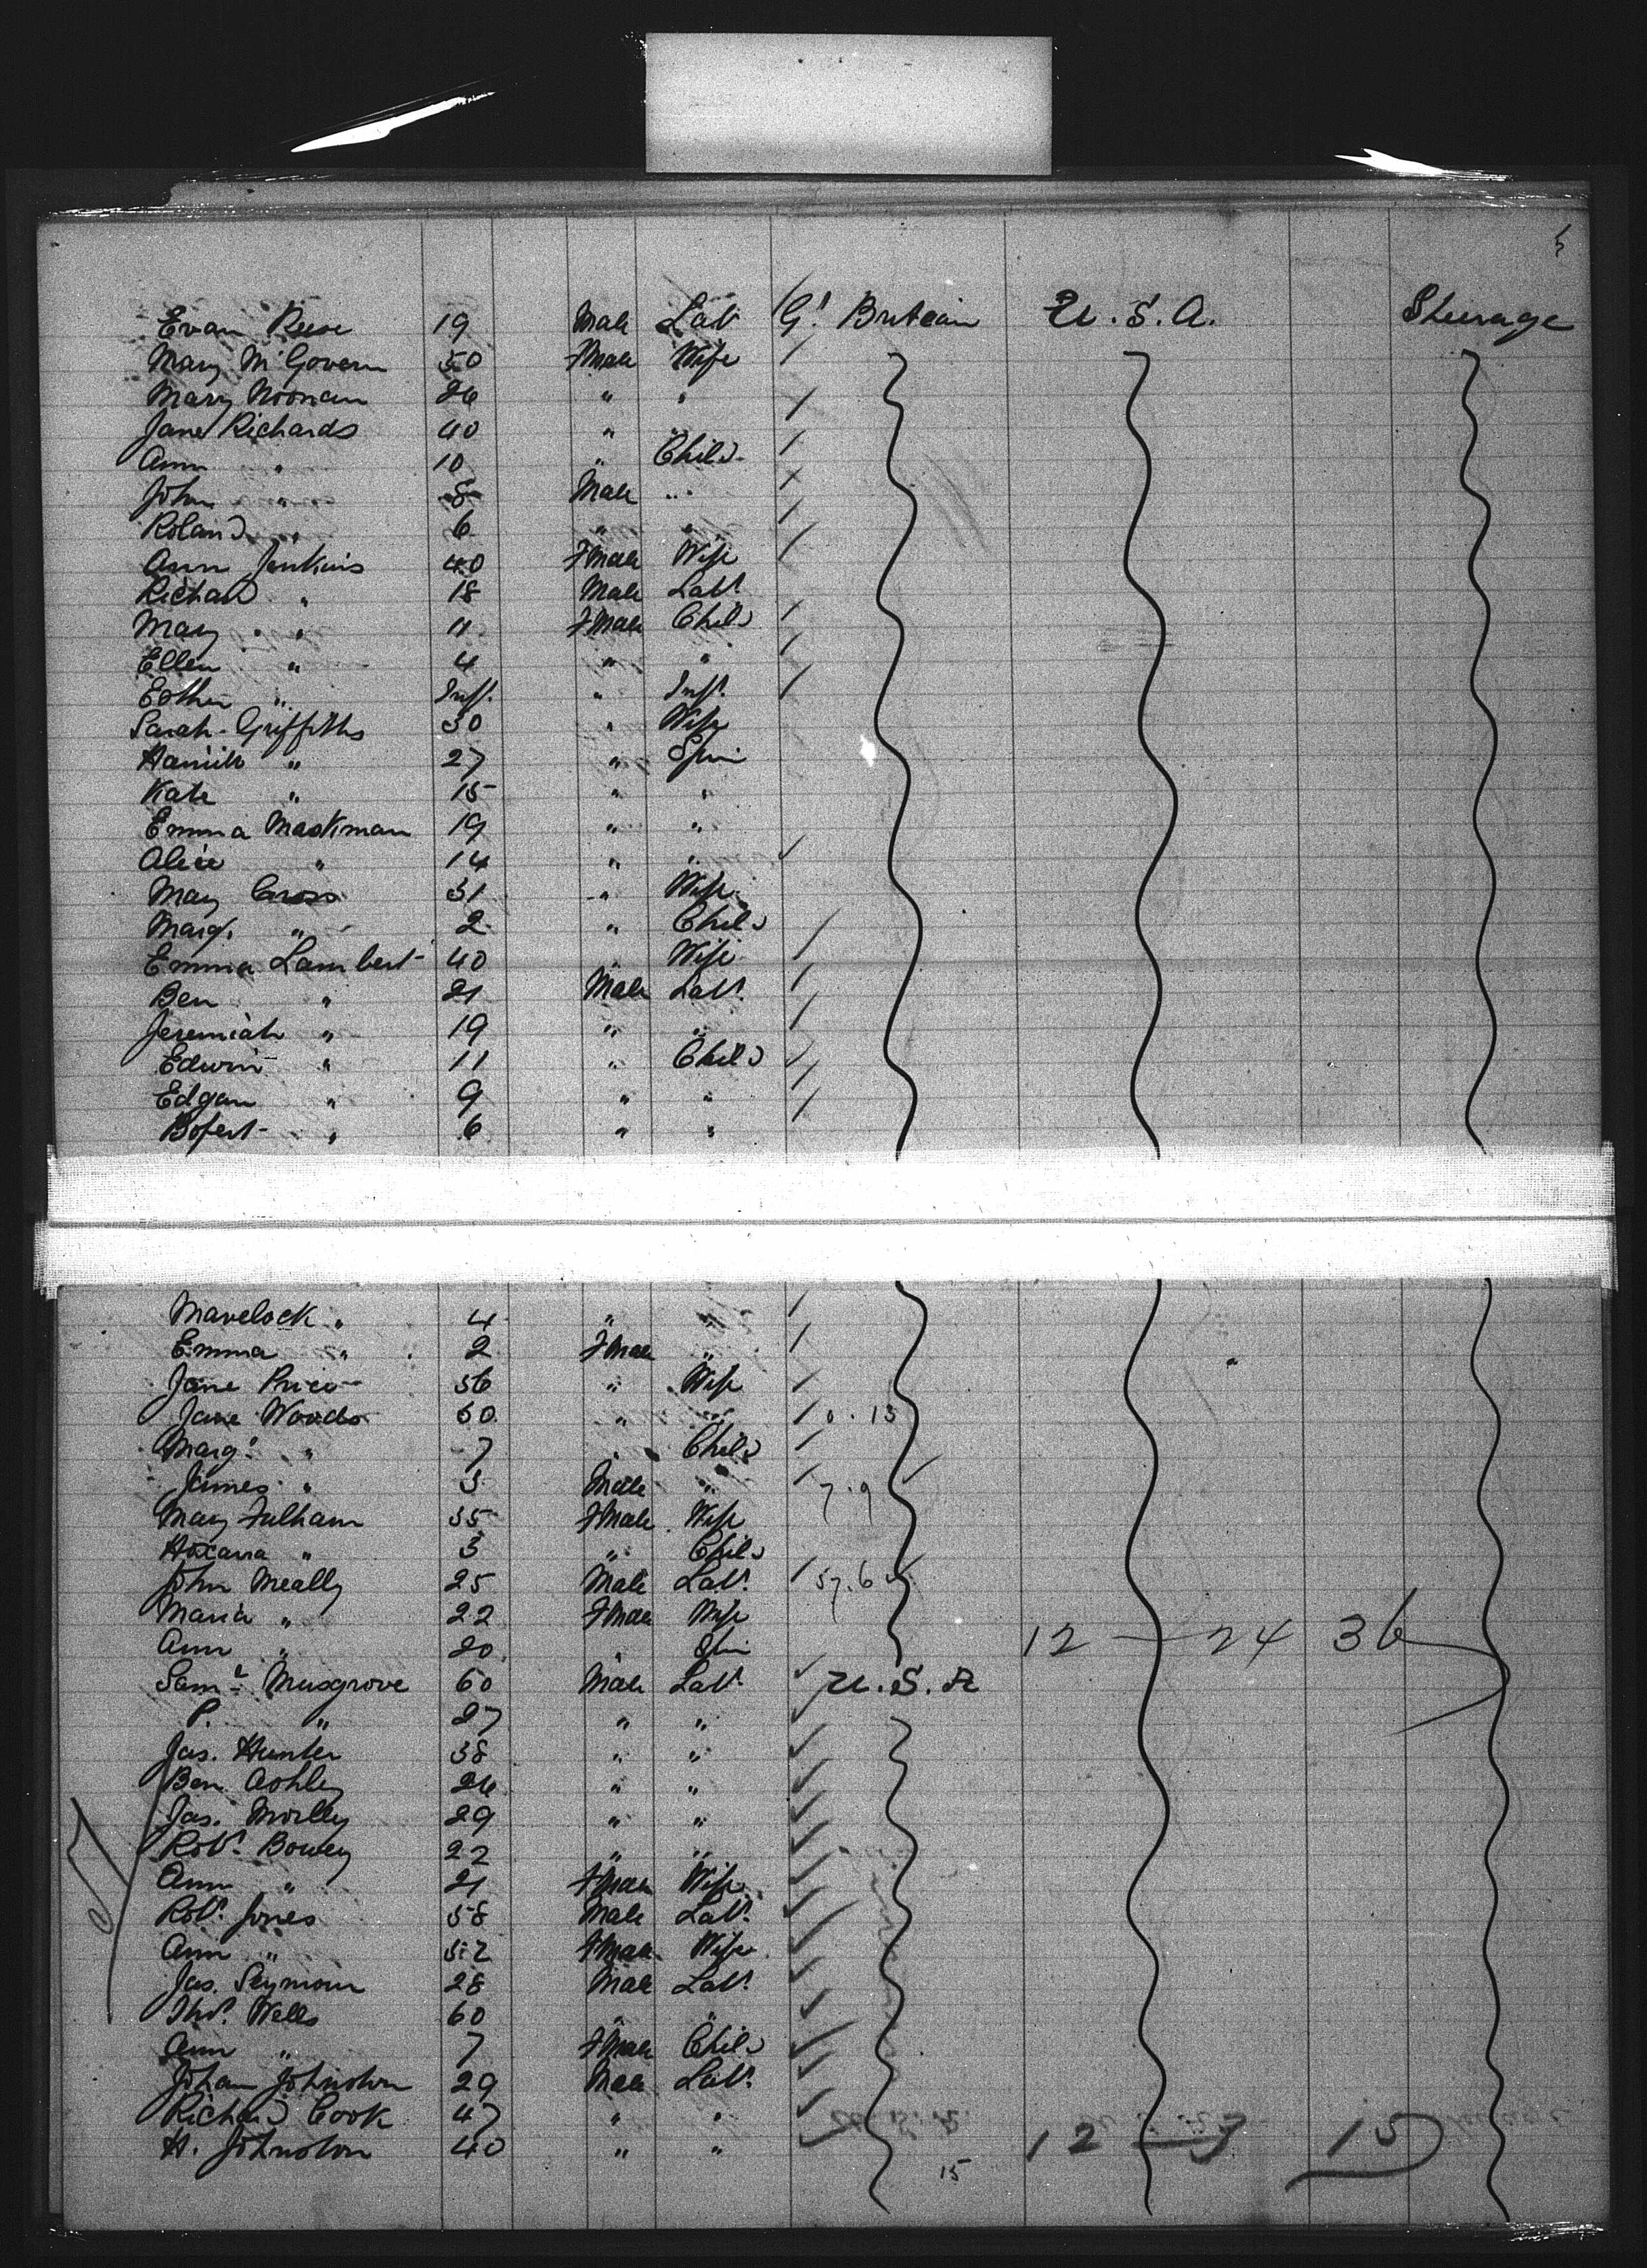 Evan Reese 19 Male Labr Gt Britain U.S.A. Steerage
Mary McGovern 50 Fmale Wife
Mary Noonan 26 " "
Jane Richards 40 " "
Ann " 10 " Child
John " 8 Male "
Roland " 6 " "
Ann Jenkins 40 Fmale Wife
Richard " 18 Male Labr
Mary " 11 Fmale Child
Ellen " 4 " "
Esther " Inft. " Inft.
Sarah Griffiths 50 " Wife
Hannih " 27 " Spin
Kate " 15 " "
Emma Maskman 19 " "
Alice " 14 " "
Mary Cross 31 " Wife
Margt " 2 " Child
Emma Lambert 40 " Wife
Ben " 21 Male Labr
Jeremiah " 19 " "
Edwin " 11 " Child
Edgar " 9 " "
" 6 " "
Mavelock " 4 " "
Emma " 2 Fmale "
Jane Price 36 " Wife
Jane Woods 30 " " 0.13
Margt " 7 " Child
James " 3 Male " 7.9
Mary Fulham 35 Fmale Wife
" 3 " Child
John Meally 25 Male Labr 57.6
Maria " 22 Fmale Wife
Ann " 20 " Spin 12 — 24 36
Saml Musgrove 60 Male Labr U.S.A
P. " 27 " "
Jas. Hunter 38 " "
Ben Ashley 26 " "
Jas. Morlly 29 " "
Robt Bowey 22 " "
Ann " 21 Fmale Wife
Robt Jones 58 Male Labr
Ann " 52 Fmale Wife
Jas. Seymour 28 Male Labr
Thos. Wells 60 " "
Ann " 7 Fmale Child
Johan Johnston 29 Male Labr
Richard Cook 47 " "
H. Johnston 40 " " 12 — 3 15
15